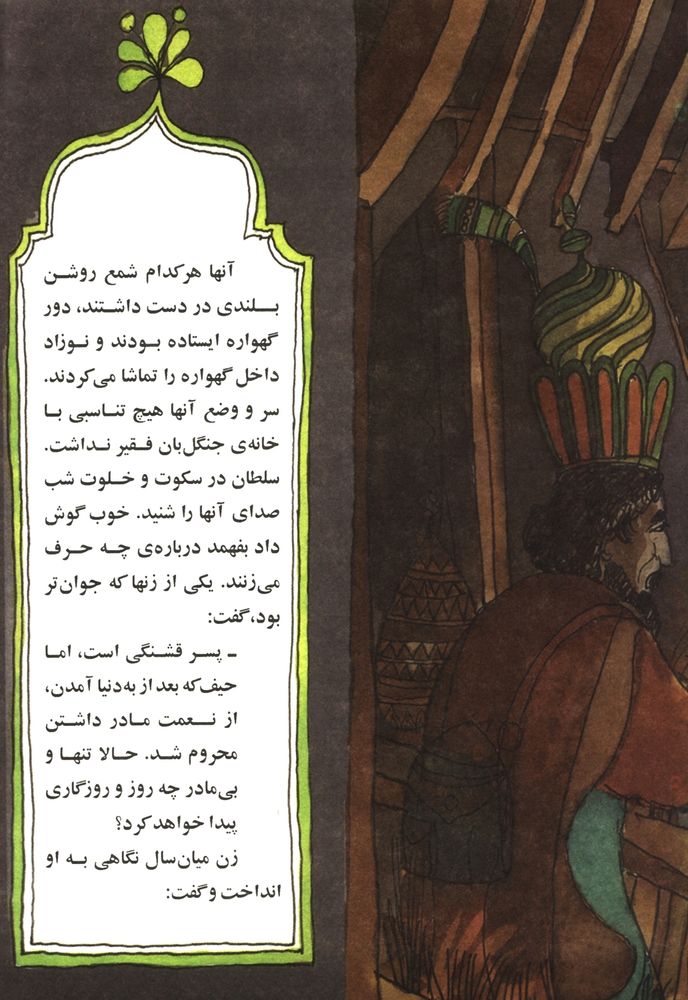 آنها هرکدام شمع روشن
بلندی در دست داشتند، دور
گهواره ایستاده بودند و نوزاد
داخل گهواره را تماشا می‌کردند.
سر و وضع آنها هیچ تناسبی با
خانه‌ی جنگل‌بان فقیر نداشت.
سلطان در سکوت و خلوت شب
صدای آنها را شنید. خوب گوش
داد بفهمد درباره‌ی چه حرف
می‌زنند. یکی از زنها که جوان‌تر
بود، گفت:
ـ پسر قشنگی است، اما
حیف که بعد از به‌دنیا آمدن،
از نعمت مادر داشتن
محروم شد. حالا تنها و
بی‌مادر چه روز و روزگاری
پیدا خواهد کرد؟
زن میان‌سال نگاهی به او
انداخت و گفت: